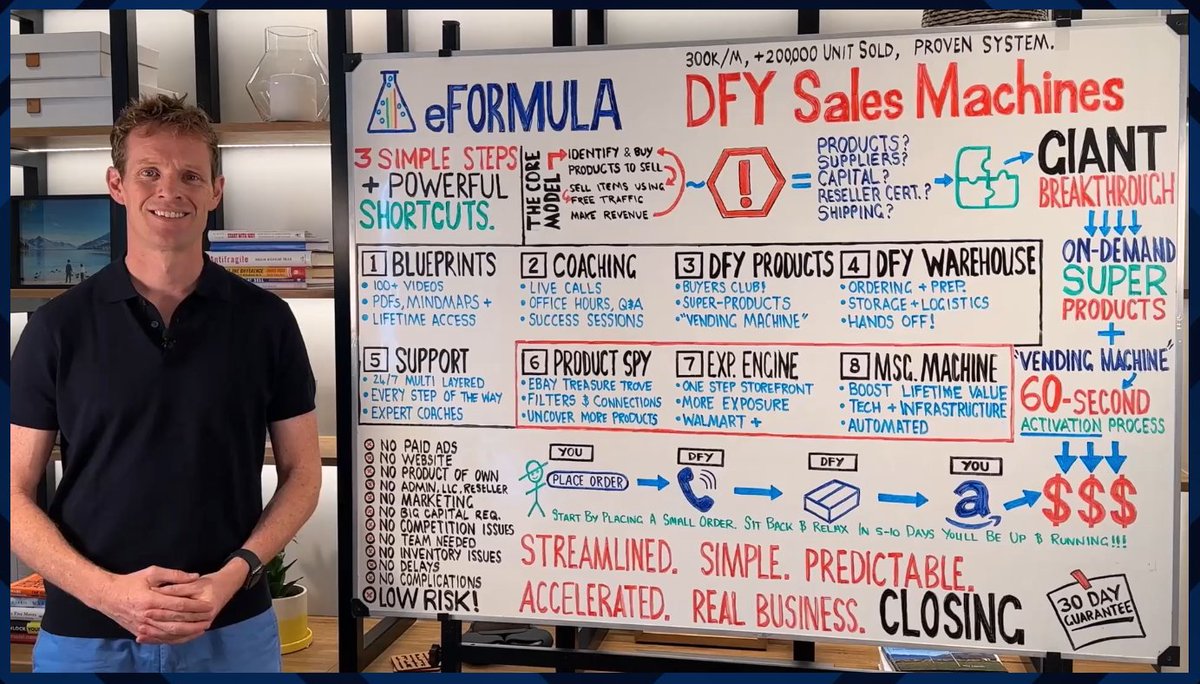 300K/M, +200,000 UNIT SOLD, PROVEN SYSTEM.
eFORMULA
DFY Sales Machines
3 SIMPLE STEPS
+ POWERFUL
SHORTCUTS.
THE CORE
MODEL
IDENTIFY & BUY
PRODUCTS TO SELL
SELL ITEMS USING
FREE TRAFFIC
MAKE REVENUE
~
!
=
PRODUCTS?
SUPPLIERS?
CAPITAL?
RESELLER CERT.?
SHIPPING?
GIANT
BREAKTHROUGH
ON-DEMAND
SUPER
PRODUCTS
+
"VENDING MACHINE"
60-SECOND
ACTIVATION PROCESS
$$$
1 BLUEPRINTS
• 100+ VIDEOS
• PDFs, MINDMAPS +
• LIFETIME ACCESS
2 COACHING
• LIVE CALLS
• OFFICE HOURS, Q&A
• SUCCESS SESSIONS
3 DFY PRODUCTS
• BUYERS CLUB!
• SUPER-PRODUCTS
• "VENDING MACHINE"
4 DFY WAREHOUSE
• ORDERING + PREP.
• STORAGE + LOGISTICS
• HANDS OFF!
5 SUPPORT
• 24/7 MULTI LAYERED
• EVERY STEP OF THE WAY
• EXPERT COACHES
6 PRODUCT SPY
• EBAY TREASURE TROVE
• FILTERS & CONNECTIONS
• UNCOVER MORE PRODUCTS
7 EXP. ENGINE
• ONE STEP STOREFRONT
• MORE EXPOSURE
• WALMART +
8 MSG. MACHINE
• BOOST LIFETIME VALUE
• TECH + INFRASTRUCTURE
• AUTOMATED
NO PAID ADS
NO WEBSITE
NO PRODUCT OF OWN
NO ADMIN, LLC, RESELLER
NO MARKETING
NO BIG CAPITAL REQ.
NO COMPETITION ISSUES
NO TEAM NEEDED
NO INVENTORY ISSUES
NO DELAYS
NO COMPLICATIONS
LOW RISK!
YOU
PLACE ORDER
DFY
DFY
YOU
a
START BY PLACING A SMALL ORDER. SIT BACK & RELAX IN 5-10 DAYS YOU'LL BE UP & RUNNING!!!
STREAMLINED. SIMPLE. PREDICTABLE.
ACCELERATED. REAL BUSINESS. CLOSING
30 DAY
GUARANTEE
START WITH WHY
Antifragile